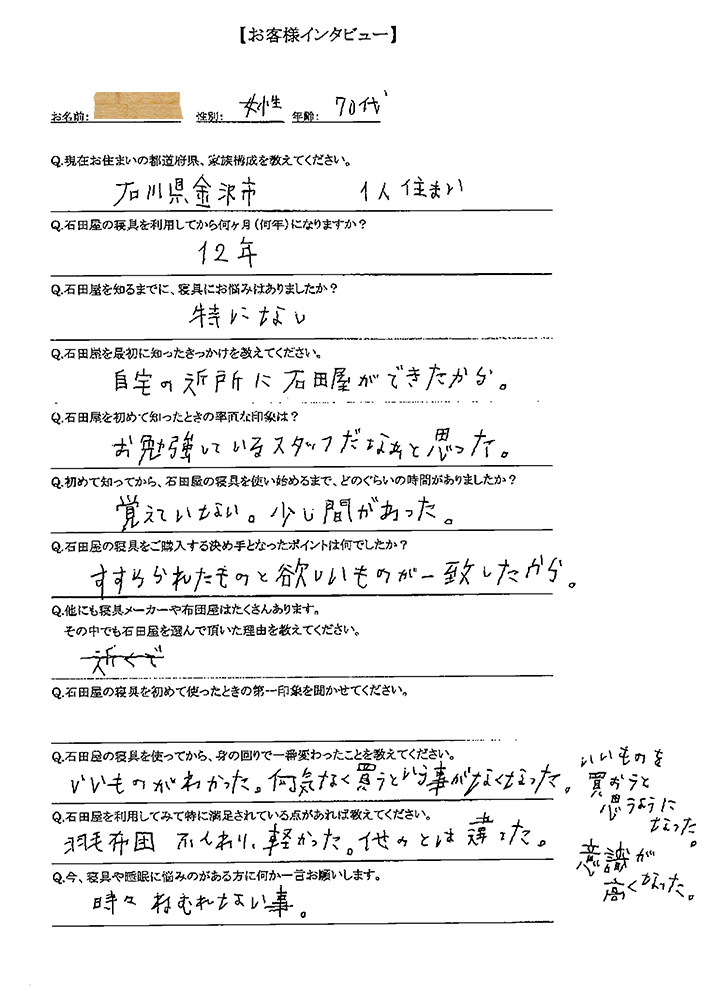 【お客様インタビュー】
お名前： 性別： 女性 年齢： 70代
Q.現在お住まいの都道府県、家族構成を教えてください。
石川県金沢市 1人住まい
Q.石田屋の寝具を利用してから何ヶ月（何年）になりますか？
12年
Q.石田屋を知るまでに、寝具にお悩みはありましたか？
特になし
Q.石田屋を最初に知ったきっかけを教えてください。
自宅の近所に石田屋ができたから。
Q.石田屋を初めて知ったときの率直な印象は？
お勉強しているスタッフだなあと思った。
Q.初めて知ってから、石田屋の寝具を使い始めるまで、どのぐらいの時間がありましたか？
覚えていない。少し間があった。
Q.石田屋の寝具をご購入する決め手となったポイントは何でしたか？
すすめられたものと欲しいものが一致したから。
Q.他にも寝具メーカーや布団屋はたくさんあります。
その中でも石田屋を選んで頂いた理由を教えてください。
近くで
Q.石田屋の寝具を初めて使ったときの第一印象を聞かせてください。
Q.石田屋の寝具を使ってから、身の回りで一番変わったことを教えてください。
いいものがわかった。何気なく買うという事がなくなった。
いいものを
買おうと
思うように
なった。
意識が
高くなった。
Q.石田屋を利用してみて特に満足されている点があれば教えてください。
羽毛布団 ふんわり、軽かった。他のとは違ってた。
Q.今、寝具や睡眠に悩みのがある方に何か一言お願いします。
時々ねむれない事。